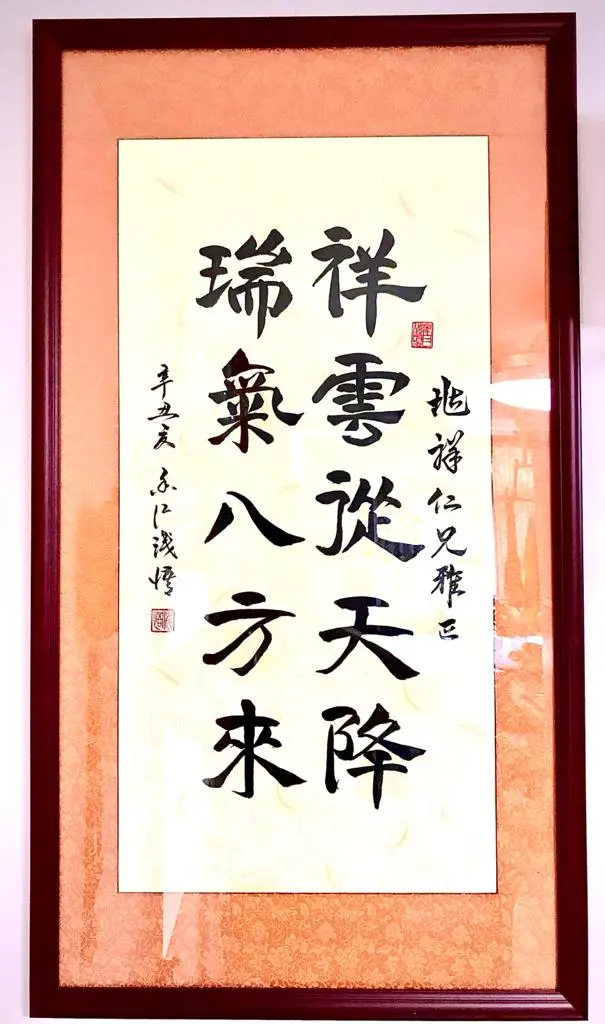 祥仁兄雅正
祥雲從天降
瑞氣八方來
辛丑夏